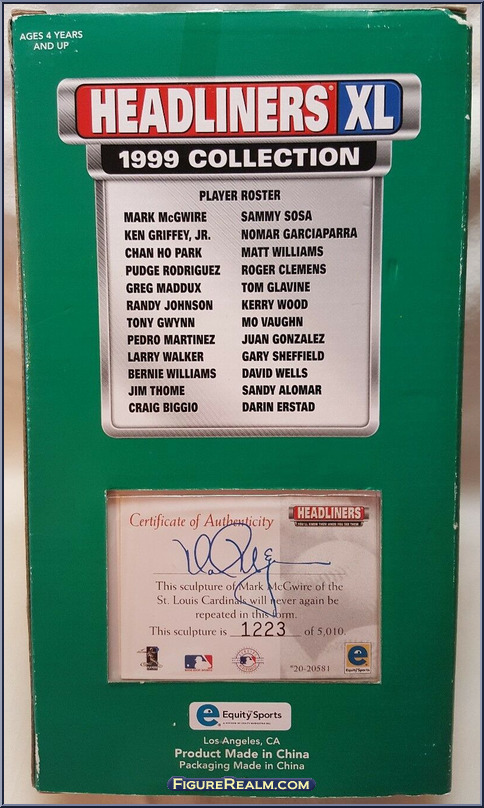 AGES 4 YEARS
AND UP
HEADLINERS® XL
1999 COLLECTION
PLAYER ROSTER
MARK McGWIRE
KEN GRIFFEY, JR.
CHAN HO PARK
PUDGE RODRIGUEZ
GREG MADDUX
RANDY JOHNSON
TONY GWYNN
PEDRO MARTINEZ
LARRY WALKER
BERNIE WILLIAMS
JIM THOME
CRAIG BIGGIO
SAMMY SOSA
NOMAR GARCIAPARRA
MATT WILLIAMS
ROGER CLEMENS
TOM GLAVINE
KERRY WOOD
MO VAUGHN
JUAN GONZALEZ
GARY SHEFFIELD
DAVID WELLS
SANDY ALOMAR
DARIN ERSTAD
Certificate of Authenticity
HEADLINERS
This sculpture of Mark McGwire of the
St. Louis Cardinals will never again be
repeated in this form.
This sculpture is 1223 of 5,010.
*20-20581
e.
e. Equity Sports
Los Angeles, CA
Product Made in China
Packaging Made in China
FIGUREREALM.COM